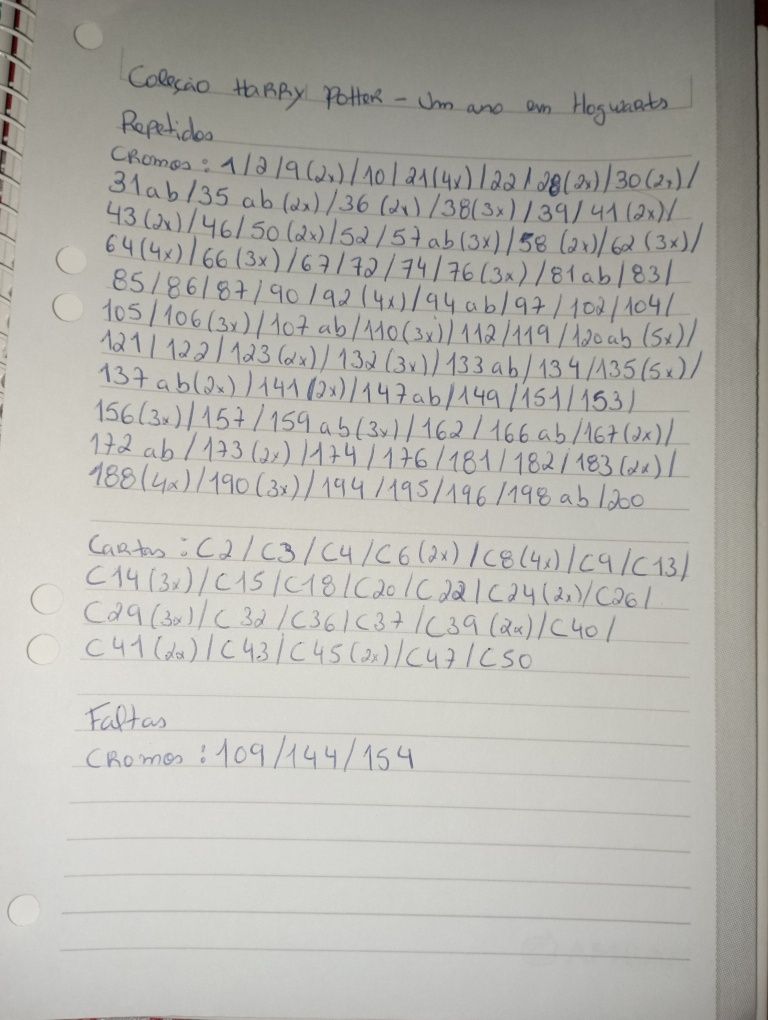 Coleção HARRY POTTER - Um ano em Hogwarts
Repetidos
CROMOS : 1/2/9(2x)/10/21(4x)/22/28(2x)/30(2x)/
31ab/35 ab(2x)/36(2x)/38(3x)/39/41(2x)/
43(2x)/46/50(2x)/52/57ab(3x)/58(2x)/62(3x)/
64(4x)/66(3x)/67/72/74/76(3x)/81ab/83/
85/86/87/90/92(4x)/94ab/97/102/104/
105/106(3x)/107 ab/110(3x)/112/119/120ab(5x)/
121/122/123(2x)/132(3x)/133ab/134/135(5x)/
137ab(2x)/141(2x)/147ab/149/151/153/
156(3x)/157/159ab(3x)/162/166ab/167(2x)/
172 ab/173(2x)/174/176/181/182/183(2x)/
188(4x)/190(3x)/194/195/196/198 ab/200
CARtas : C2/C3/C4/C6(2x)/C8(4x)/C9/C13/
C14(3x)/C15/C18/C20/C22/C24(2x)/C26/
C29(3x)/C32/C36/C37/C39(2x)/C40/
C41(2x)/C43/C45(2x)/C47/C50
Faltas
CROMOS : 109/144/154